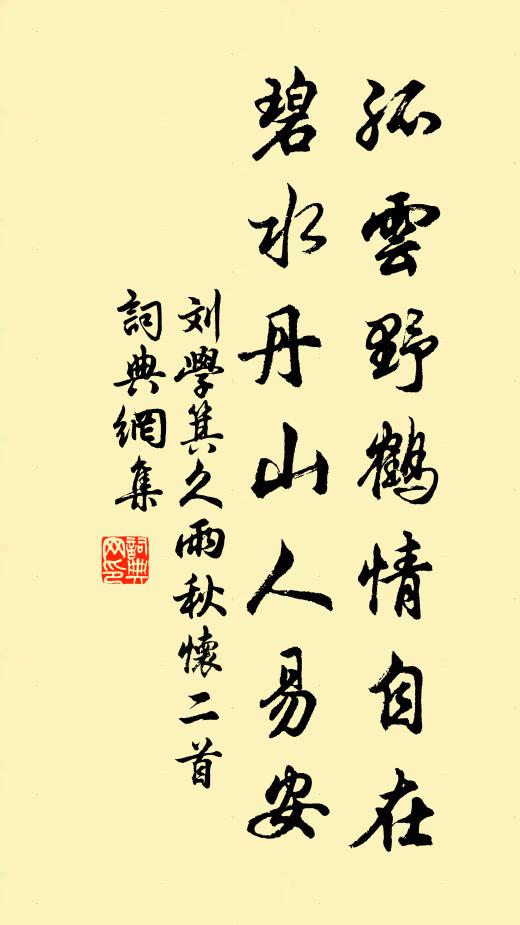 孤雲野鶴情自在
碧水丹山人易安
刘學箕久雨秋懷二首
詞典網集
詞典
网印